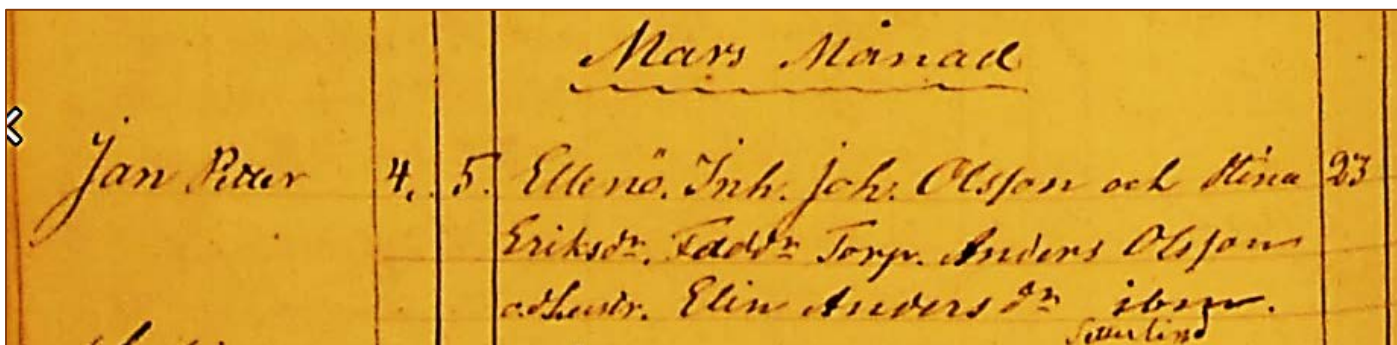 Mars Månad
Jan Petter 4. 5. Ellenö. Inh. Joh. Olsson och Stina 23
Eriksdr. Faddr Torp. Anders Olsson
o. hustr. Elin Anders dr ibm.